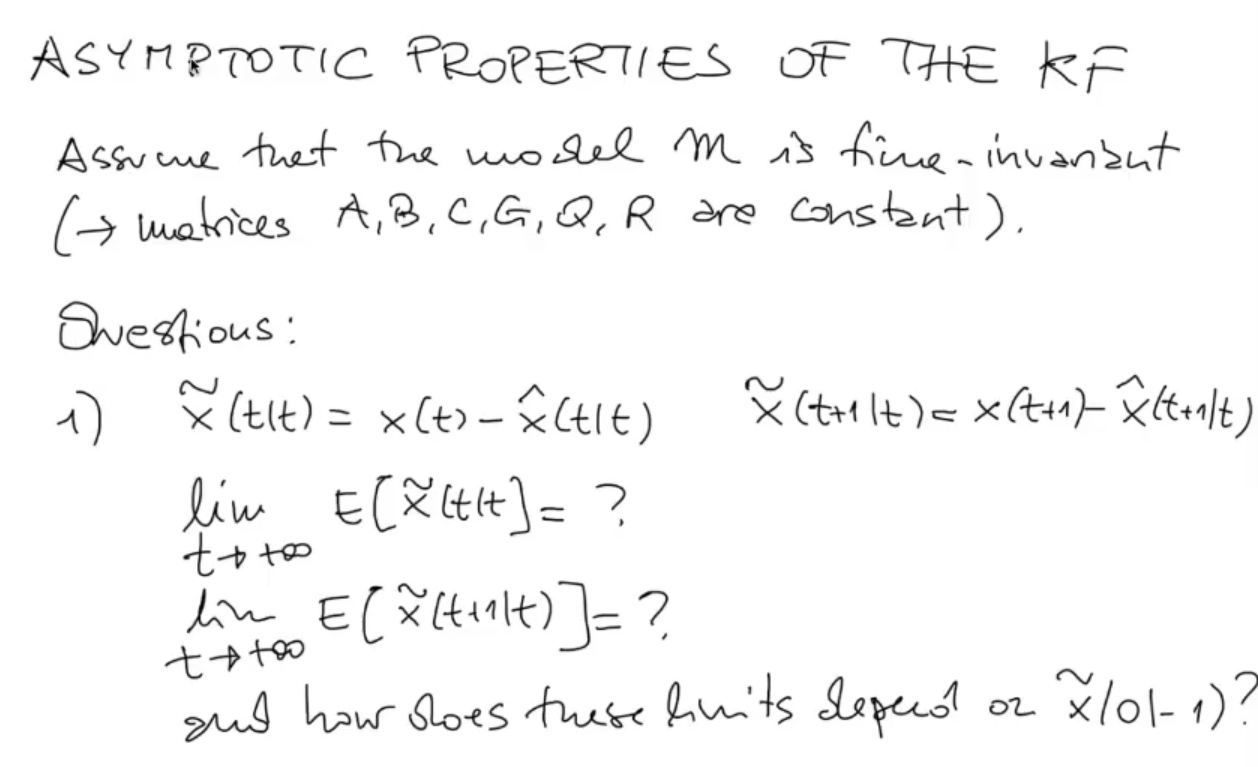 ASYMPTOTIC PROPERTIES OF THE KF
Assume that the model M is time-invariant
(→ matrices A, B, C, G, Q, R are constant).
Questions:
1) x̃(t|t) = x(t) - x̂(t|t) x̃(t+1|t) = x(t+1) - x̂(t+1|t)
lim E[x̃(t|t] = ?
t→+∞
lim E[x̃(t+1|t)] = ?
t→+∞
and how does these limits depend on x̃(0|-1)?